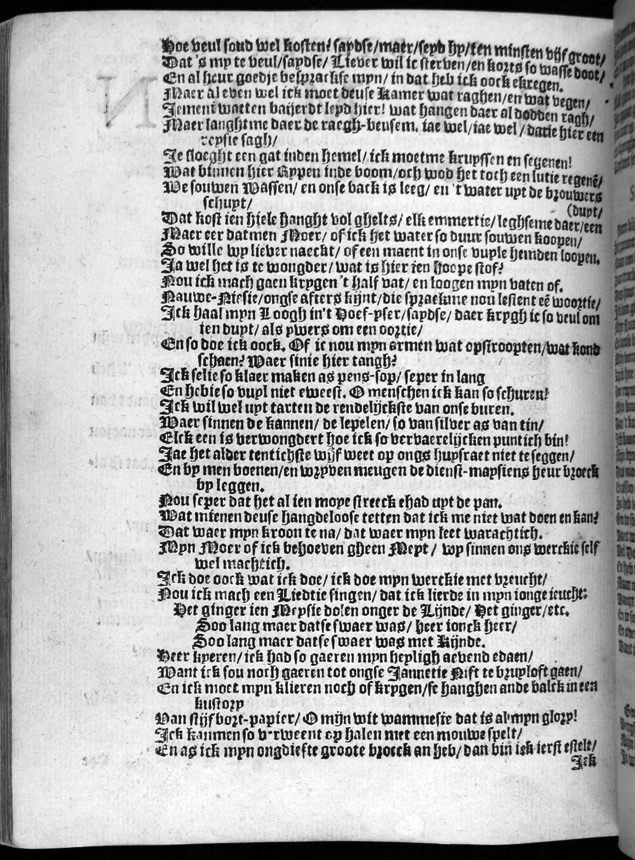 Hoe veul soud wel kosten? saydse/maer/seyd hy/ten minsten vijf groot/
Dat 's my te veul/saydse/ Liever wil ic sterven/en korts so wasse doot/
En al heur goedje besprackse myn/ in dat heb ick oock ekregen.
Maer al even wel ick moet deuse Kamer wat raghen/en wat vegen/
Jement watten baijerdt leyd hier! wat hangen daer al dodden ragh/
Maer langhtme daer de raegh-beusem. iae wel/iae wel/ datie hier een
reysie sagh/
Je floeght een gat inden hemel/ ick moetme kruyssen en segenen!
Wat binnen hier Rypen inde boom/och wod het toch een lutie regenẽ/
We souwen Wassen/ en onse back is leeg/ en 't water uyt de brouwers
schuyt/
(duyt/
Dat kost ien hiele hanght vol ghelts/ elk emmertie/leghseme daer/een
Maer eer datmen Moer/ of ick het water so duur souwen koopen/
So wille wy liever naeckt/ of een maent in onse vuyle hemden loopen.
Ja wel het is te wongder/ wat is hier ien hoope stof?
Nou ick mach gaen krygen 't half vat/ en loogen myn vaten of.
Nauwe-Niesie/ongse afters kijnt/die spraekme nou lestent eẽ woortie/
Ick haal myn Loogh in't Hoef-yser/saydse/ daer krygh ic so veul om
ien duyt/ als ywers om een oortie/
En so doe ick oock. Of ic nou myn ermen wat opstroopten/wat kond
schaen? Waer sinie hier tangh?
Ick selie so klaer maken as pens-sop/ seper in lang
En hebie so vuyl niet eweest. O menschen ick kan so schuren?
Ick wil wel uyt tarten de rendelijckste van onse buren.
Waer sinnen de kannen/ de lepelen/ so van silver as van tin/
Elck een is verwongdert hoe ick so vervaerelijcken puntich bin!
Jae het alder tentichste wijf weet op ongs huysraet niet te seggen/
En by men boenen/en wryven meugen de dienst-maysiens heur broeck
by leggen.
Nou seper dat het al ien moye streeck ehad uyt de pan.
Wat mienen deuse hangdeloose tetten dat ick me niet wat doen en kan?
Dat waer myn kroon te na/ dat waer myn leet warachtich.
Myn Moer of ick behoeven gheen Meyt/ wy sinnen ons werckie self
wel machtich.
Ick doe oock wat ick doe/ ick doe myn werckie met vreucht/
Nou ick mach een Liedtie singen/ dat ick lierde in myn ionge ieucht:
Het ginger ien Meysie dolen onger de Lijnde/ Het ginger/etc.
Soo lang maer datse swaer was/ heer ionck heer/
Soo lang maer datse swaer was met Kijnde.
Heer kyeren/ ick had so gaeren myn heyligh aevend edaen/
Want ick sou noch gaeren tot ongse Jannetie Nift te bruyloft gaen/
En ick moet myn klieren noch of krygen/se hanghen ande balck in een
kustory
Van stijf bort-papier/ O mijn wit wammesie dat is al myn glory!
Ick kanmen so verweent op halen met een mouwe spelt/
En as ick myn ongdiefte groote broeck an heb/ dan bin ick ierst estelt/
Ick